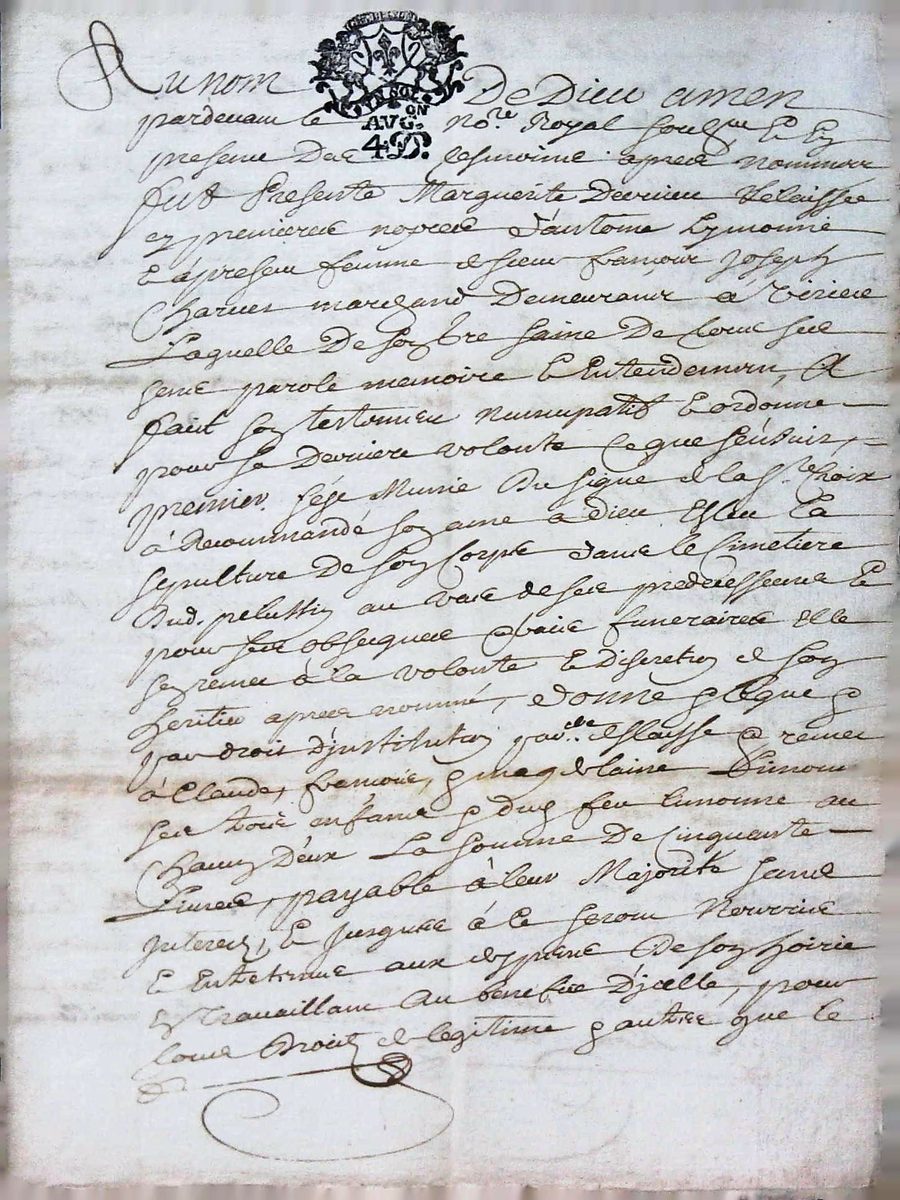 Au nom De Dieu amen
LYNSOL
ON
AVG.
4 D.
pardevant le no.re Royal soubs.ne Et En
presence Des tesmoins apres nommes
fut Presente Marguerite Dervieu delaissee
en premieres nopces d'antoine Lymonne
Et apresent femme de sieur françois Joseph
marchand Demeurant a
Laquelle De son bre saine De tous ses
sens parole memoire Et Entendement, A
fait son testament Nuncupatif Et ordonne
pour sa Derniere volonte Ce que s'ensuit,
premier. s'est Munie Du signe de la s.te Croix
à Recommandé son ame a dieu Esleu La
sepulture De son Corps dans le Cimetiere
Dud. pelussin au vase de ses predecesseurs Et
pour ses obseques frais funeraires Elle
s'en remet à la volonte Et Discretion de son
heritier apres nommé, donne legue
par droit d'institution par.lle delaisse remet
à Claude, françois, magdelaine Limonne
ses trois enfants dud. feu Limonne au
Chacun D'eux La somme De Cinquante
Livres, payable à leur Majorité sans
Interest, Et Jusques à Ce seront Nourris
Et Entretenus aux despens De son hoirie
En Travaillant Au benefice D'icelle, pour
tous Droits de legitime autres que le